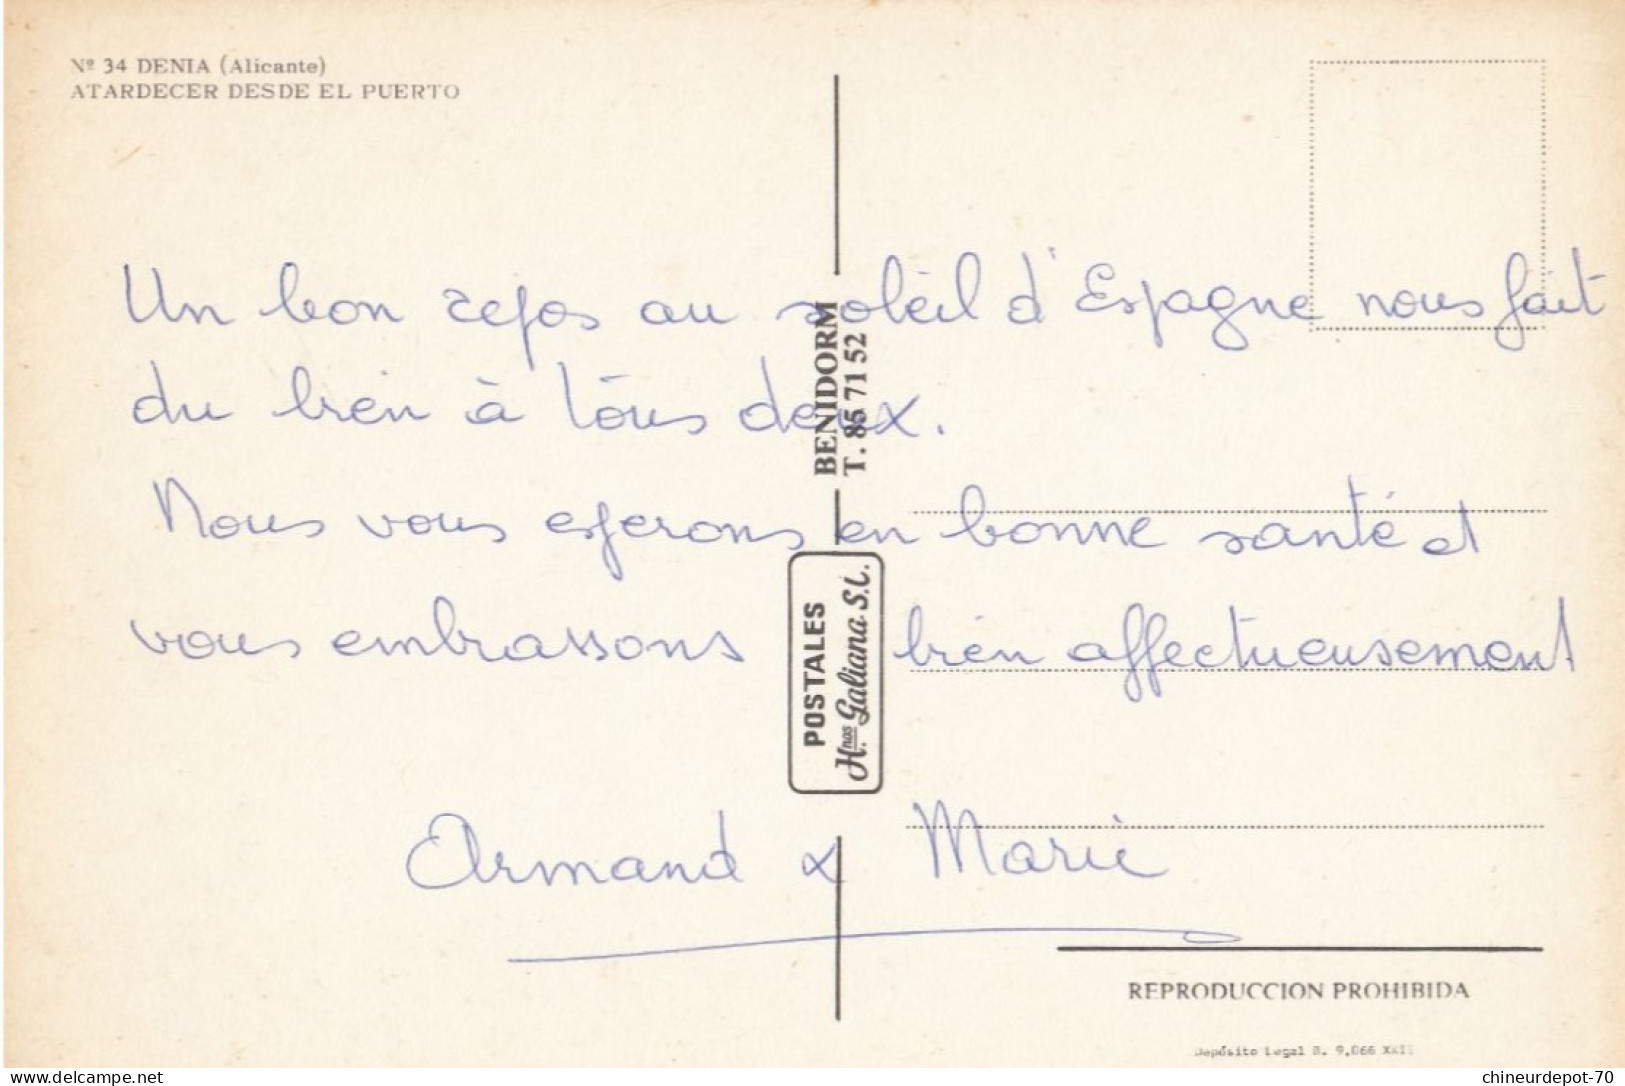 Nº 34 DENIA (Alicante)
ATARDECER DESDE EL PUERTO
Un bon repos au soleil d'Espagne nous fait
du bien à tous deux.
Nous vous esperons en bonne santé et
vous embrassons bien affectueusement
Armand & Marie
BENIDORM
T. 85 71 52
POSTALES
Hnos Galiana S.L.
REPRODUCCION PROHIBIDA
Depósito Legal B. 9.066 XXII
delcampe.net
chineurdepot-70